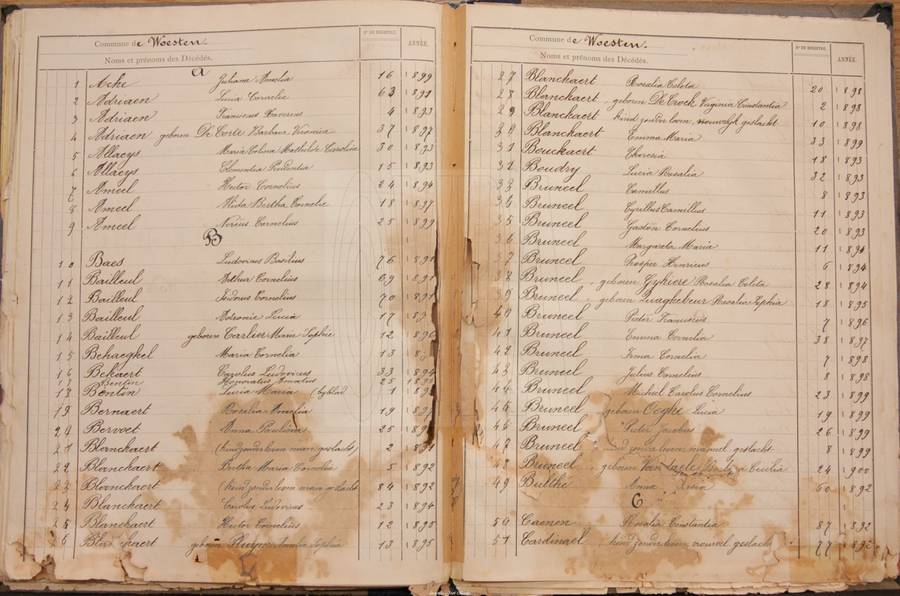 Commune de Woesten.
Noms et prénoms des Décédés.
N° DE REGISTRE.
ANNÉE.
A
1 Ache Juliana Amelia 16 1899
2 Adriaen Lucia Cornelia 63 1891
3 Adriaen Franciscus Xaverius 4 1893
4 Adriaen geboren De Corte Barbara Veronica 37 1897
5 Allaeys Maria Colena Mathilde Carolina 30 1893
6 Allaeys Clementia Prudentia 15 1893
7 Ameel Hector Cornelius 24 1894
8 Ameel Alida Bertha Cornelie 18 1897
9 Ameel Cornelius 25 1899
B
10 Baes Ludovicus Basilius 76 1891
11 Bailleul Arthur Cornelius 69 1891
12 Bailleul Isidorus Cornelius 70 1891
13 Bailleul Lucia 17
14 Bailleul geboren Carlier Maria Sophie 12 1896
15 Behaeghel Maria Cornelia 13
16 Bekaert Carolus Ludovicus 33 1894
17 Bentin Honoratus Amatus 25
18 Bentin Lucia Maria 1
19 Bernaert Rosalia Amelia 19
20 Bervoet Anna Paulina 25
21 Blanckaert (kind zonder leven, geslacht) 2
22 Blanckaert Bertha Maria Cornelia 5 1892
23 Blanckaert (kind zonder leven geslacht 84 1892
24 Blanckaert Carolus Ludovicus 23 1894
25 Blanckaert Hector Cornelius 12 1895
geboren Amelia Sophia 13 1895
Commune de Woesten.
Noms et prénoms des Décédés.
N° DE REGISTRE.
ANNÉE.
27 Blanckaert Rosalia Coleta 20 1898
28 Blanckaert geboren De Crock Virginia Constantia 2 1898
29 Blanckaert kind zonder leven, vrouwelijk geslacht 10 1898
30 Blanckaert Emma Maria 33 1899
31 Bouckaert Theresia 18 1893
32 Boudry Lucia Rosalia 32 1893
33 Bruneel Camillus 8 1893
34 Bruneel Cyrillus Camillus 11 1893
35 Bruneel Gaston Cornelius 20 1893
36 Bruneel Margareta Maria 11 1894
37 Bruneel Prosper Henricus 6 1894
38 Bruneel geboren Rosalia Coleta 28 1894
39 Bruneel geboren Quaghebeur Rosalia Sophia 18 1895
40 Bruneel Pieter Franciscus 7 1896
41 Bruneel Emma Cornelia 38 1897
42 Bruneel Irma Cornelia 7 1898
43 Bruneel Julius Cornelius 8 1898
44 Bruneel Michiel Carolus Cornelius 23 1899
45 Bruneel geboren Lucia 19 1899
46 Bruneel Pieter Jacobus 26 1899
47 Bruneel kind zonder leven mannel. geslacht. 8 1899
48 Bruneel geboren Cecilia 24 1900
49 Butthé Anna 60 1892
C
50 Caenen Rosalia Constantia 87 1892
51 Cardinael kind zonder leven, vrouwel. geslacht 77 1892